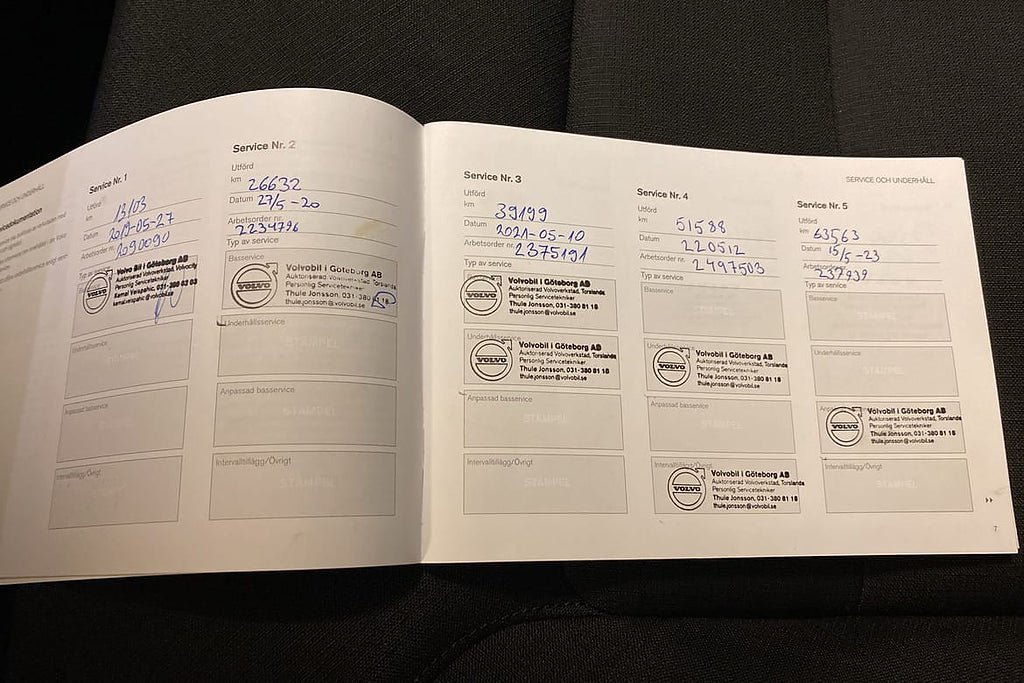 SERVICE OCH UNDERHÅLL
Service Nr. 1
Utförd
km 13103
Datum 2019-05-27
Arbetsorder nr. 2090090
Typ av
Volvo Bil i Göteborg AB
Auktoriserad Volvoverkstad, Volvocity
Personlig Servicetekniker
VOLVO
Underhållsservice
STÄMPEL
Anpassad basservice
Intervalltillägg/Övrigt
STÄMPEL
Service Nr. 2
Utförd
km 26632
Datum 27/5-20
Arbetsorder nr.
2234796
Typ av service
Basservice
VOLVO
Volvobil i Göteborg AB
Auktoriserad Volvoverkstad, Torslanda
Personlig Servicetekniker
Thule Jonsson, 031-380 81 18
thule.jonsson@volvobil.se
Underhållsservice
STÄMPEL
Anpassad basservice
STÄMPEL
Intervalltillägg/Övrigt
STÄMPEL
Service Nr. 3
Utförd
km 39199
Datum 2021-05-10
Arbetsorder nr. 2375191
Typ av service
VOLVO
Volvobil i Göteborg AB
Auktoriserad Volvoverkstad, Torslanda
Personlig Servicetekniker
Thule Jonsson, 031-380 81 18
thule.jonsson@volvobil.se
VOLVO
Volvobil i Göteborg AB
Auktoriserad Volvoverkstad, Torslanda
Personlig Servicetekniker
Thule Jonsson, 031-380 81 18
thule.jonsson@volvobil.se
Anpassad basservice
STÄMPEL
Intervalltillägg/Övrigt
STÄMPEL
Service Nr. 4
Utförd
km 51588
Datum 220512
Arbetsorder nr. 2497503
Typ av service
Basservice
STÄMPEL
VOLVO
Volvobil i Göteborg AB
Auktoriserad Volvoverkstad, Torslanda
Personlig Servicetekniker
Thule Jonsson, 031-380 81 18
thule.jonsson@volvobil.se
Anpassad basservice
STÄMPEL
Intervalltillägg/Övrigt
VOLVO
Volvobil i Göteborg AB
Auktoriserad Volvoverkstad, Torslanda
Personlig Servicetekniker
Thule Jonsson, 031-380 81 18
thule.jonsson@volvobil.se
SERVICE OCH UNDERHÅLL
Service Nr. 5
Utförd
km 63563
Datum 15/5-23
Arbetsorder nr.
Typ av service
Basservice
STÄMPEL
Underhållsservice
STÄMPEL
VOLVO
Volvobil i Göteborg AB
Auktoriserad Volvoverkstad, Torslanda
Personlig Servicetekniker
Thule Jonsson, 031-380 81 18
thule.jonsson@volvobil.se
Intervalltillägg/Övrigt
STÄMPEL
7